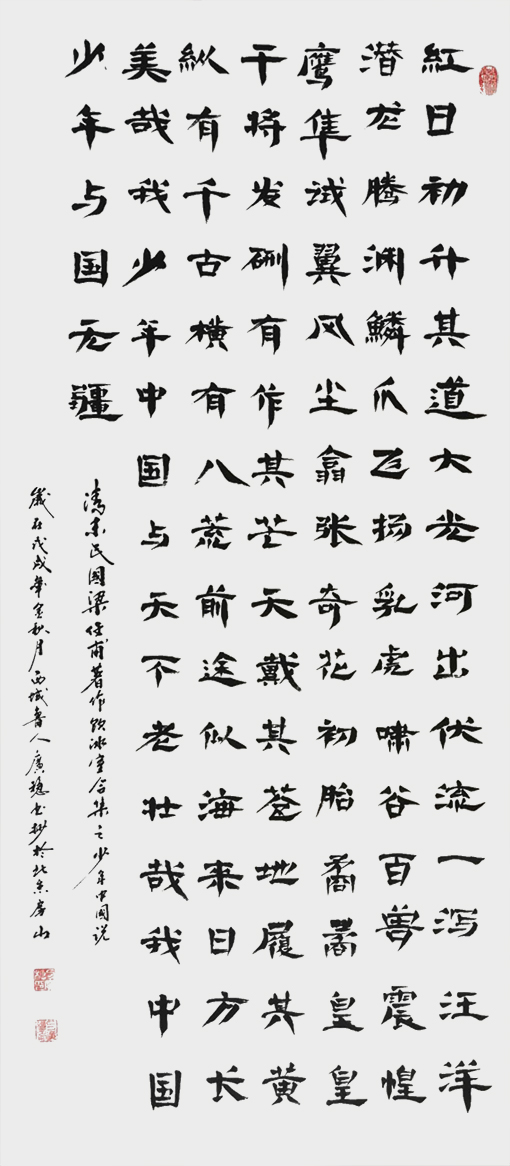 紅日初升其道大光河出伏流一泻汪洋
潜龙腾渊鳞爪飞扬乳虎啸谷百兽震惶
鹰隼试翼风尘翕张奇花初胎矞矞皇皇
干将发硎有作其芒天戴其苍地履其黄
纵有千古横有八荒前途似海来日方长
美哉我少年中国与天不老壮哉我中国
少年与国无疆
清末民國梁任甫著作饮冰室合集之少年中国说
歲在戊戌年金秋月西城鲁人廣书抄於北京房山